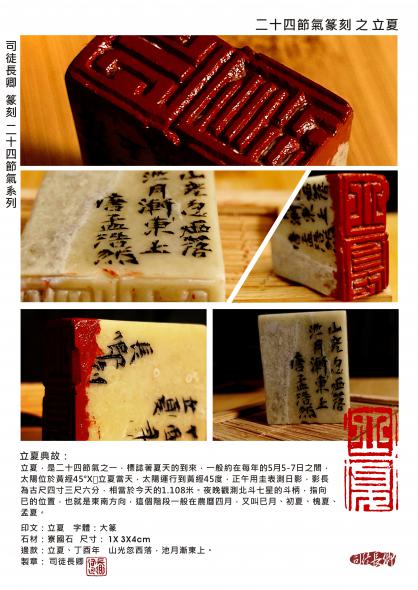 二十四節氣篆刻 之 立夏
司徒長卿 篆刻 二十四節氣系列
山光忽西落
池月漸東上
唐孟浩然
長卿刻
立夏
山光忽西落
池月漸東上
唐孟浩然
立夏
立夏典故：
立夏，是二十四節氣之一，標誌著夏天的到來，一般約在每年的5月5-7日之間，
太陽位於黃經45°X□立夏當天，太陽運行到黃經45度，正午用圭表測日影，影長
為古尺四寸三尺六分，相當於今天的1.108米。夜晚觀測北斗七星的斗柄，指向
巳的位置，也就是東南方向，這個階段一般在農曆四月，又叫巳月、初夏、槐夏、
孟夏。
印文：立夏　字體：大篆
石材：寮國石　尺寸： 1X 3X4cm
邊款：立夏、丁酉年　山光忽西落，池月漸東上。
製章： 司徒長卿
司徒長卿